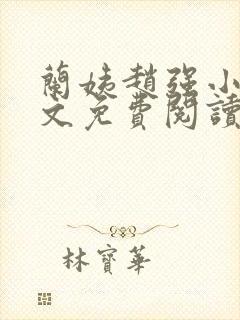 蘭姨趙强小
文免費閱讀
林寶華